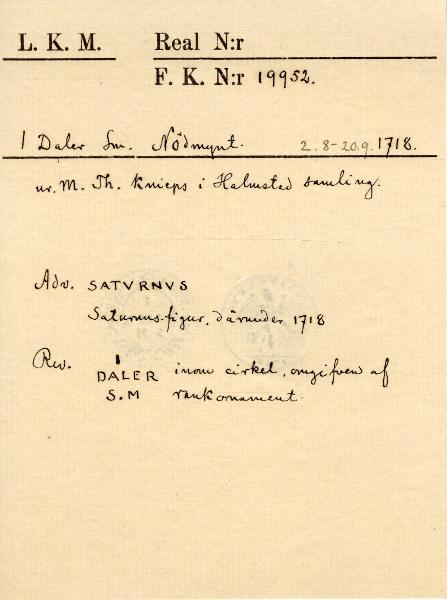 L. K. M. Real N:r
F. K. N:r 19952.
1 Daler Sm. Nödmynt. 2.8-20.9. 1718.
ur. M. Th. Knieps i Halmsted samling.
Adv. SATVRNVS
Saturnus-figur, därunder 1718
Rev. 1
DALER inom cirkel, omgifven af
S.M rankornament.